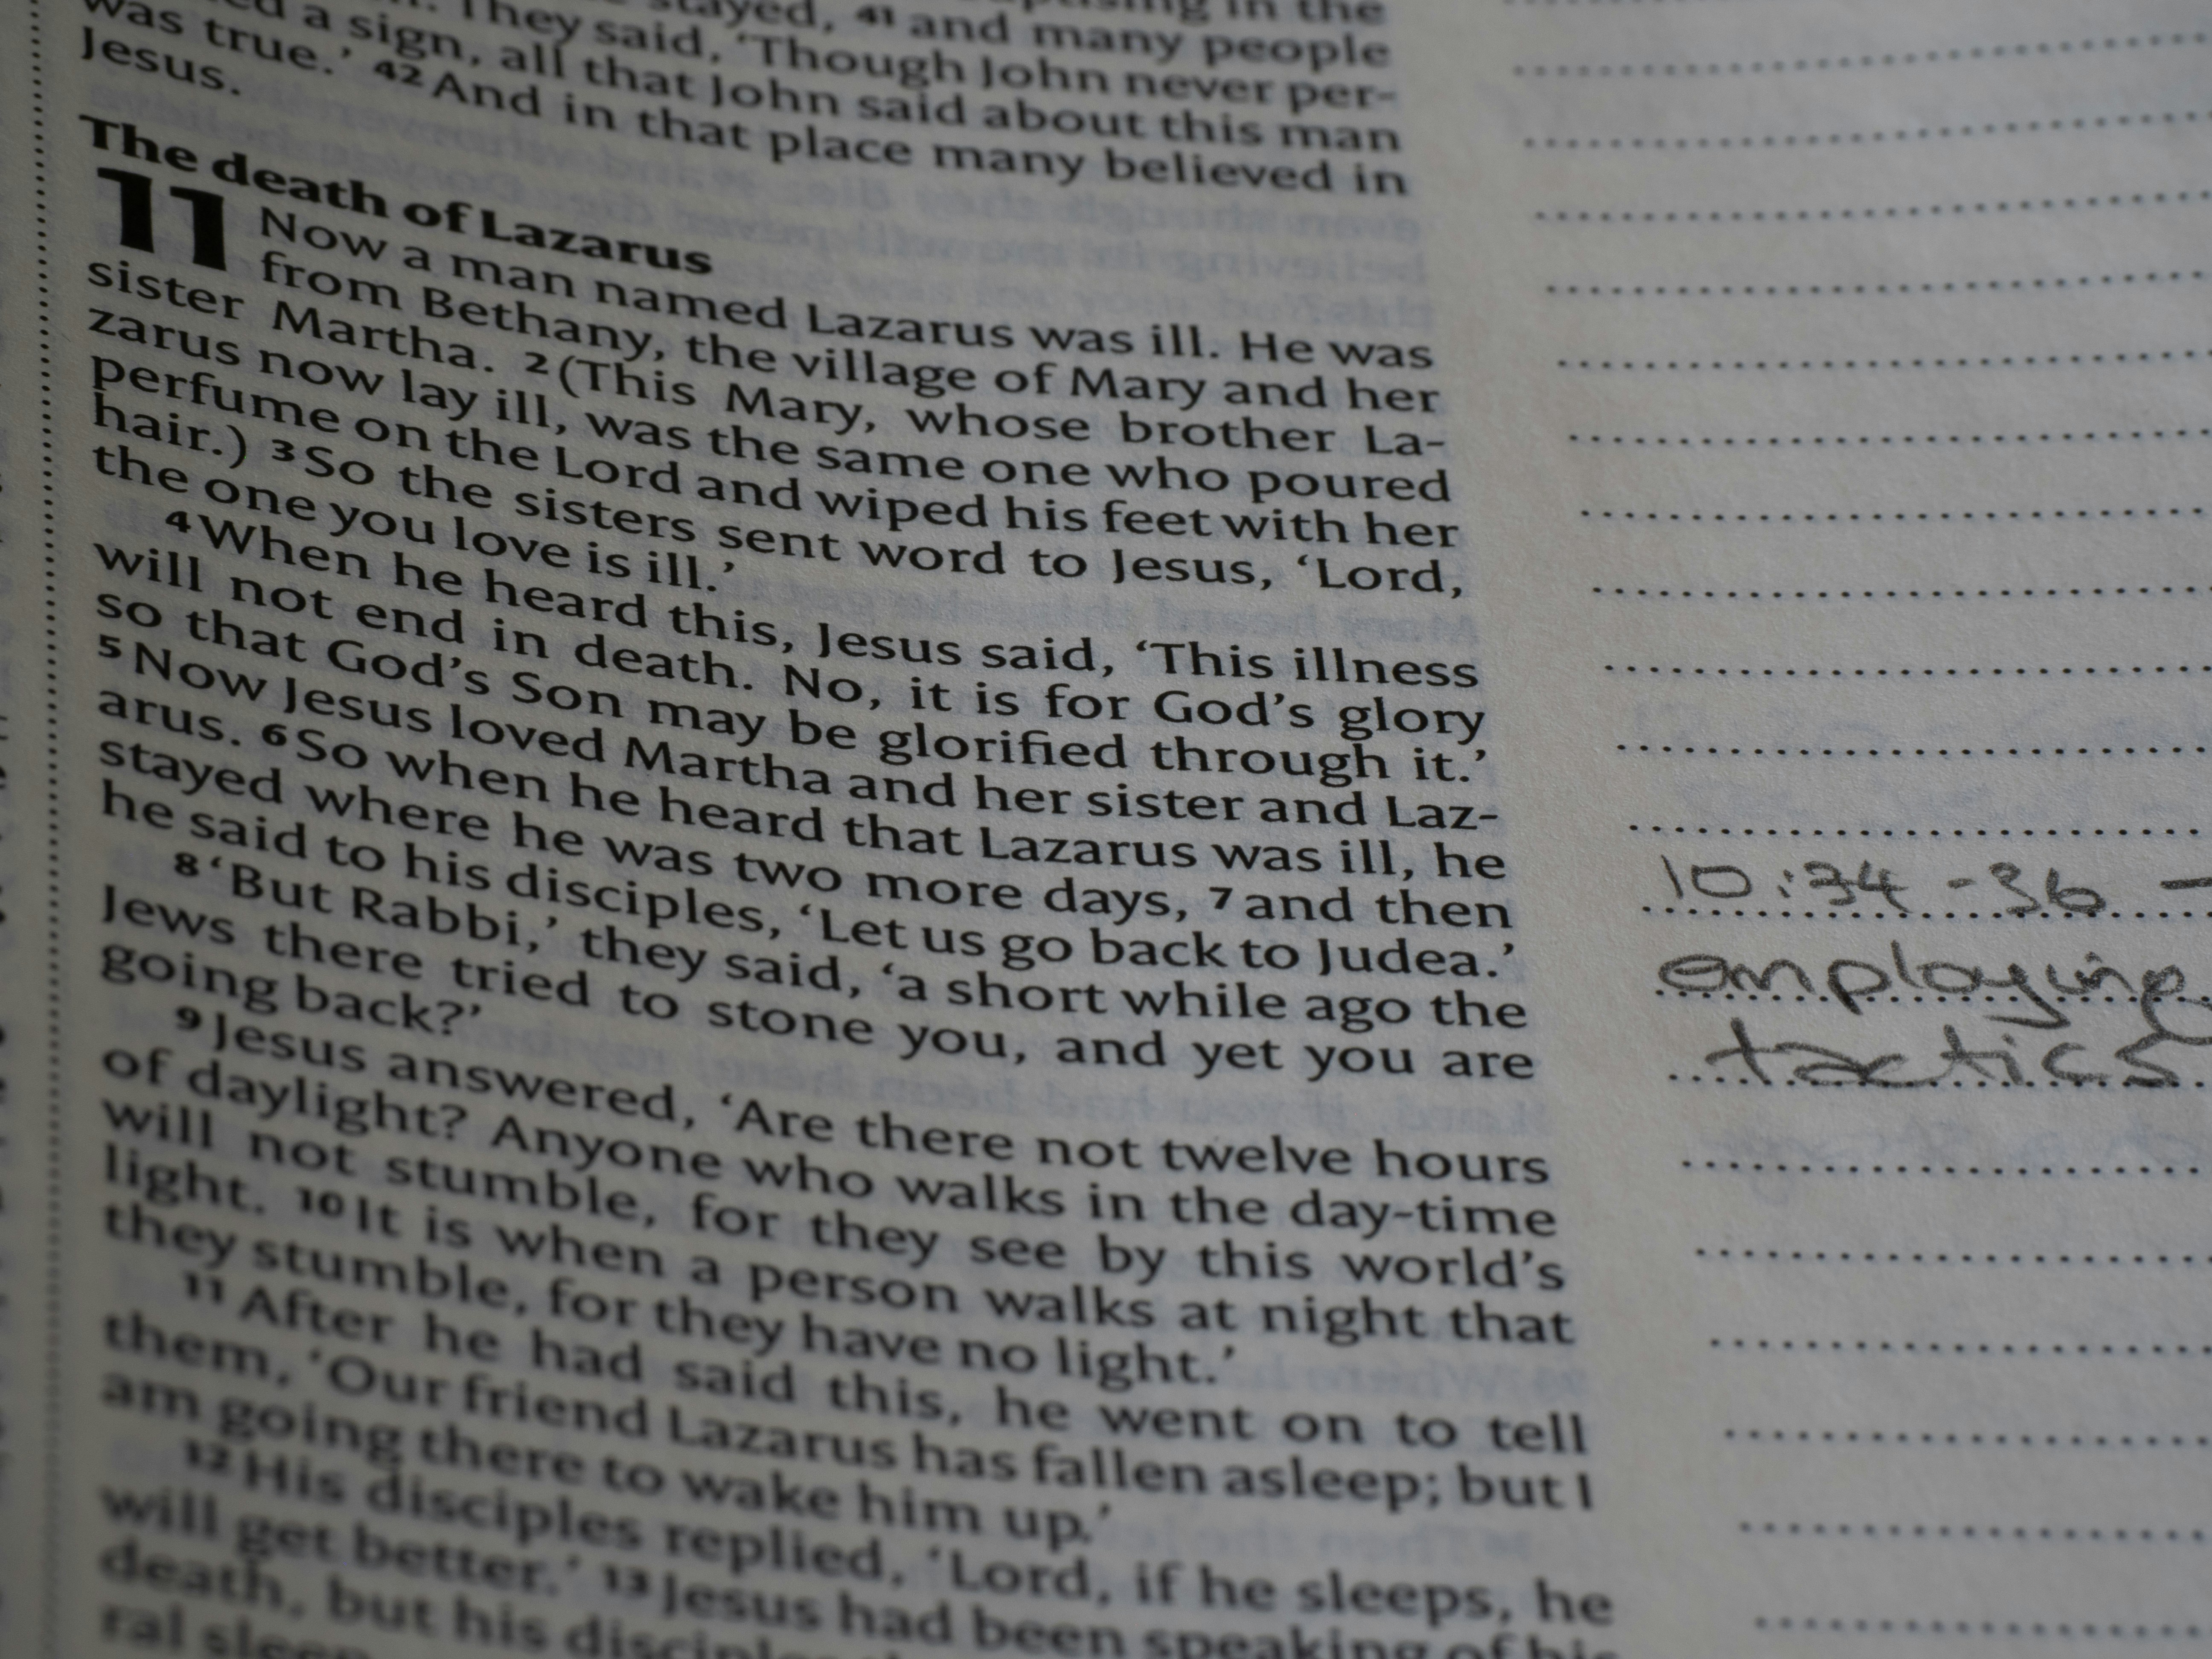 stayed, 41 and many people
a sign, all that John said about this man
They said, 'Though John never per-
was true.' 42 And in that place many believed in
Jesus.
The death of Lazarus
11 Now a man named Lazarus was ill. He was
from Bethany, the village of Mary and her
sister Martha. 2 (This Mary, whose brother La-
zarus now lay ill, was the same one who poured
perfume on the Lord and wiped his feet with her
hair.) 3 So the sisters sent word to Jesus, 'Lord,
the one you love is ill.'
4 When he heard this, Jesus said, 'This illness
will not end in death. No, it is for God's glory
so that God's Son may be glorified through it.'
5 Now Jesus loved Martha and her sister and Laz-
arus. 6 So when he heard that Lazarus was ill, he
stayed where he was two more days, 7 and then
he said to his disciples, 'Let us go back to Judea.'
8 'But Rabbi,' they said, 'a short while ago the
Jews there tried to stone you, and yet you are
going back?'
9 Jesus answered, 'Are there not twelve hours
of daylight? Anyone who walks in the day-time
will not stumble, for they see by this world's
light. 10 It is when a person walks at night that
they stumble, for they have no light.'
11 After he had said this, he went on to tell
them, 'Our friend Lazarus has fallen asleep; but I
am going there to wake him up.'
12 His disciples replied, 'Lord, if he sleeps, he
will get better.' 13 Jesus had been speaking of his
death, but his
ral sleep
10:34-36 -
employing
tactics